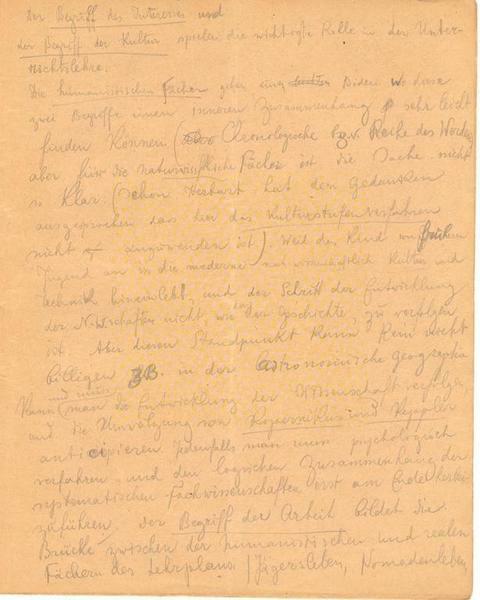 Der Begriff des Interesses und
der Begriff der Kultur spielen die wichtigste Rolle in der Unter-
richtslehre.
Die humanistischen Fächer geben einen Boden wo diese
zwei Begriffe einen inneren Zusammenhang sehr leicht
finden können (Chronologische Reihe des Werdens
aber für die naturwissftliche Fächer ist die Sache nicht
so klar. (Schon Herbart hat den Gedanken
ausgesprochen dass hier das Kulturstufenverfahren
nicht anzuwenden ist). Weil das Kind von früheren
Jugend an in die moderne naturwissenschaftlich Kultur und
Technik hineinlebt, und der Schritt der Entwicklung
der N.-Wschaften nicht, wie in der Geschichte, zu verfolgen
ist. Aber diesen Standpunkt kann Rein nicht
billigen ZB. in der Astronomische Geographie
kann (und muss) man die Entwicklung der Wissenschaft verfolgen,
und die Umwälzung von Kopernikus und Keppler
anticipieren. Jedenfalls man muss psychologisch
verfahren und den logischen Zusammenhang der
systematischen Fachwissenschaften erst am Ende herbei-
zuführen. Der Begriff der Arbeit bildet die
Brücke zwischen der humanistischen und realen
Fächern des Lehrplans / Jägersleben, Nomadenleben